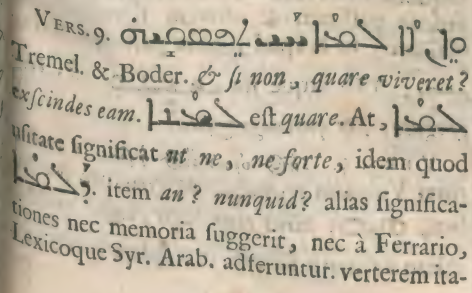 VERS. 9. ܘܐܢ ܠܐ ܠܡܐ
Tremel. & Boder. & ſi non, quare viveret?
exſcindes eam. ܠܡܢܐ eſt quare. At, ܠܡܐ
uſitate ſignificat ut ne, ne forte, idem quod
ܕܠܡܐ. item an? nunquid? alias ſignifica-
tiones nec memoria ſuggerit, nec à Ferrario,
Lexicoque Syr. Arab. adferuntur. verterem ita-